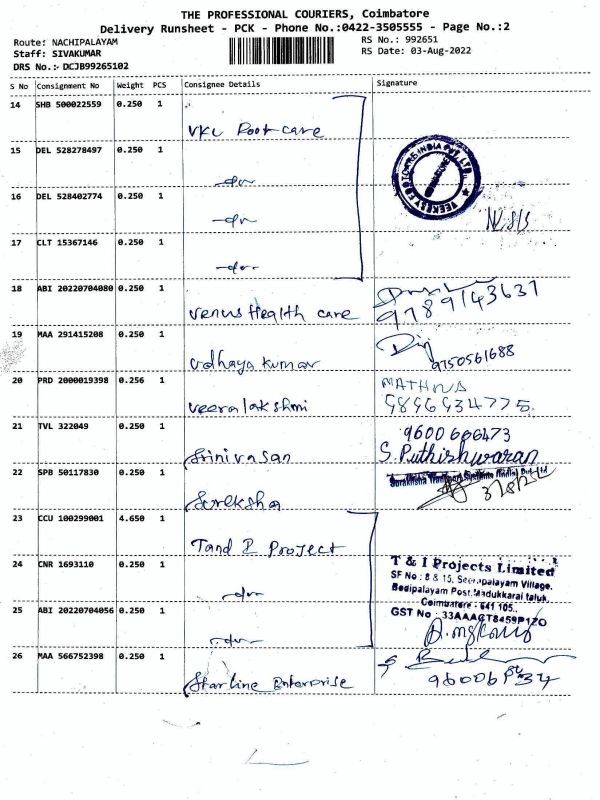 THE PROFESSIONAL COURIERS, Coimbatore
Delivery Runsheet - PCK - Phone No.:0422-3505555 - Page No.:2
Route: NACHIPALAYAM
RS No.: 992651
Staff: SIVAKUMAR
RS Date: 03-Aug-2022
DRS No.:- DCJB99265102
S No Consignment No Weight PCS Consignee Details Signature
14 SHB 500022559 0.250 1
VKC Footcare
15 DEL 528278497 0.250 1
-do-
16 DEL 528402774 0.250 1
-do-
17 CLT 15367146 0.250 1
-do-
18 ABI 20220704080 0.250 1
Venus Health care 9789143637
19 MAA 291415208 0.250 1
Udhaya kumar 9750561688
20 PRD 2000019398 0.256 1 MATHNA
Veeralakshmi
21 TVL 322049 0.250 1 9600666473
Srinivasan S. Puthishwaran
22 SPB 50117830 0.250 1
Sureksha 3/8/22
23 CCU 100299001 4.650 1
T and I Project
24 CNR 1693110 0.250 1 T & I Projects Limited
SF No : 8 & 15, Seerapalayam Village,
-do- Bodipalayam Post, Madukkarai taluk,
Coimbatore - 641 105.,
25 ABI 20220704056 0.250 1 GST No : 33AAACT8459P1ZO
-do-
26 MAA 566752398 0.250 1
Starline Enterprise